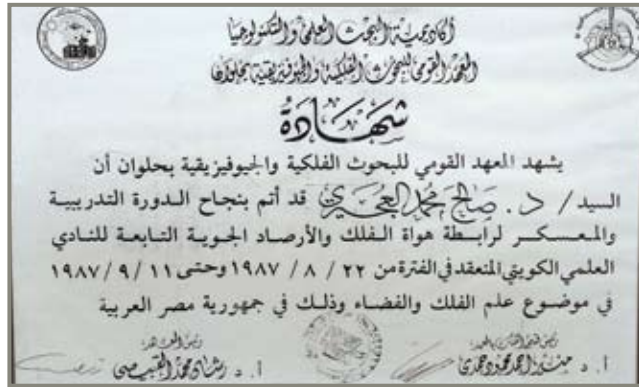 أكاديمية البحث العلمي والتكنولوجيا
المعهد القومي للبحوث الفلكية والجيوفيزيقية بحلوان
شهادة
يشهد المعهد القومي للبحوث الفلكية والجيوفيزيقية بحلوان أن
السيد / د. صالح محمد العجيري قد أتم بنجاح الدورة التدريبية
والمعسكر لرابطة هواة الفلك والأرصاد الجوية التابعة للنادي
العلمي الكويتي المنعقد في الفترة من ٢٢ / ٨ / ١٩٨٧ وحتى ١١ / ٩ / ١٩٨٧
في موضوع علم الفلك والفضاء وذلك في جمهورية مصر العربية
أ. د
أ. د